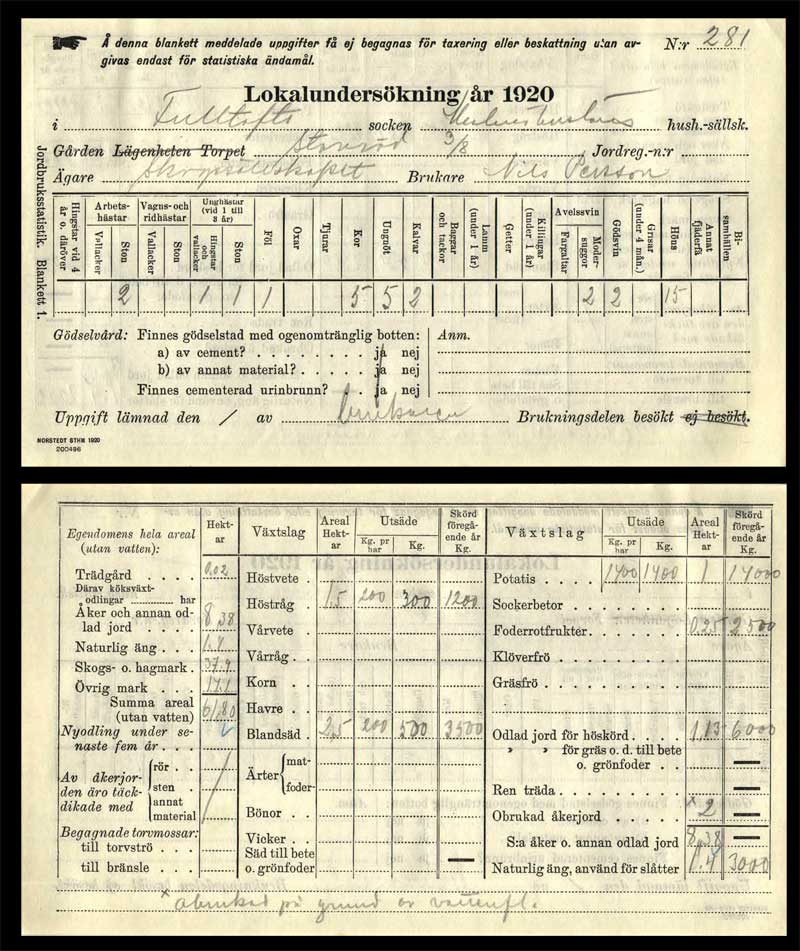 Å denna blankett meddelade uppgifter få ej begagnas för taxering eller beskattning utan av-
givas endast för statistiska ändamål.
N:r 281
Lokalundersökning år 1920
i Fulltofta socken hush.-sällsk.
Gården Lägenheten Torpet 3/8 Jordreg.-n:r
Ägare Brukare Nils Persson
Jordbruksstatistik. Blankett 1.
Hingstar vid 4 år o. däröver
Arbets-hästar
Vallacker
Ston
Vagns- och ridhästar
Vallacker
Ston
Unghästar (vid 1 till 3 år)
Hingstar och vallacker
Ston
Föl
Oxar
Tjurar
Kor
Ungnöt
Kalvar
Baggar och tackor
Lamm (under 1 år)
Getter
Killingar (under 1 år)
Avelssvin
Fargaltar
Moder-suggor
Gödsvin
Grisar (under 4 mån.)
Höns
Annat fjäderfä
Bi-samhällen
2 1 1 1 5 5 2 2 2 15
Gödselvård: Finnes gödselstad med ogenomtränglig botten:
a) av cement? ja nej
b) av annat material? ja nej
Finnes cementerad urinbrunn? ja nej
Anm.
Uppgift lämnad den / av brukaren Brukningsdelen besökt ej besökt.
NORSTEDT STHM 1920
200496
Egendomens hela areal (utan vatten): Hekt-ar
Trädgård 0,02
Därav köksväxt-odlingar har
Åker och annan od-lad jord 8,38
Naturlig äng 1,4
Skogs- o. hagmark 37,9
Övrig mark 14,1
Summa areal (utan vatten) 61,80
Nyodling under se-naste fem år
Av åkerjor-den äro täck-dikade med
rör
sten
annat material
Begagnade torvmossar:
till torvströ
till bränsle
Växtslag Areal Hekt-ar Utsäde Kg. pr har Kg. Skörd föregå-ende år Kg.
Höstvete
Höstråg 1,5 200 300 1200
Vårvete
Vårråg
Korn
Havre
Blandsäd 2,5 200 500 3500
Ärter mat-
foder-
Bönor
Vicker
Säd till bete o. grönfoder —
Växtslag Utsäde Kg. pr har Kg. Areal Hekt-ar Skörd föregå-ende år Kg.
Potatis 1400 1400 1 14000
Sockerbetor
Foderrotfrukter 0,25 2500
Klöverfrö
Gräsfrö
Odlad jord för höskörd 1,13 6000
» » för gräs o. d. till bete o. grönfoder —
Ren träda —
Obrukad åkerjord x 2 —
S:a åker o. annan odlad jord 8,38 —
Naturlig äng, använd för slåtter 1,4 3000
x obrukad på grund av